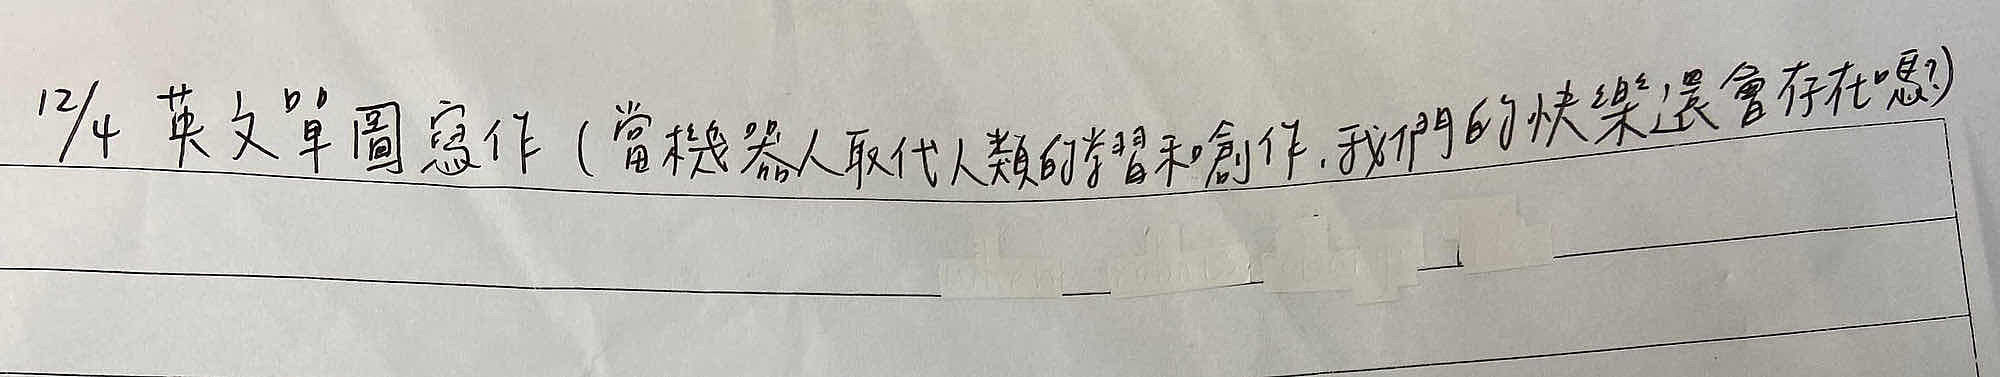 12/4 英文單圖寫作（當機器人取代人類的學習和創作，我們的快樂還會存在嗎？）